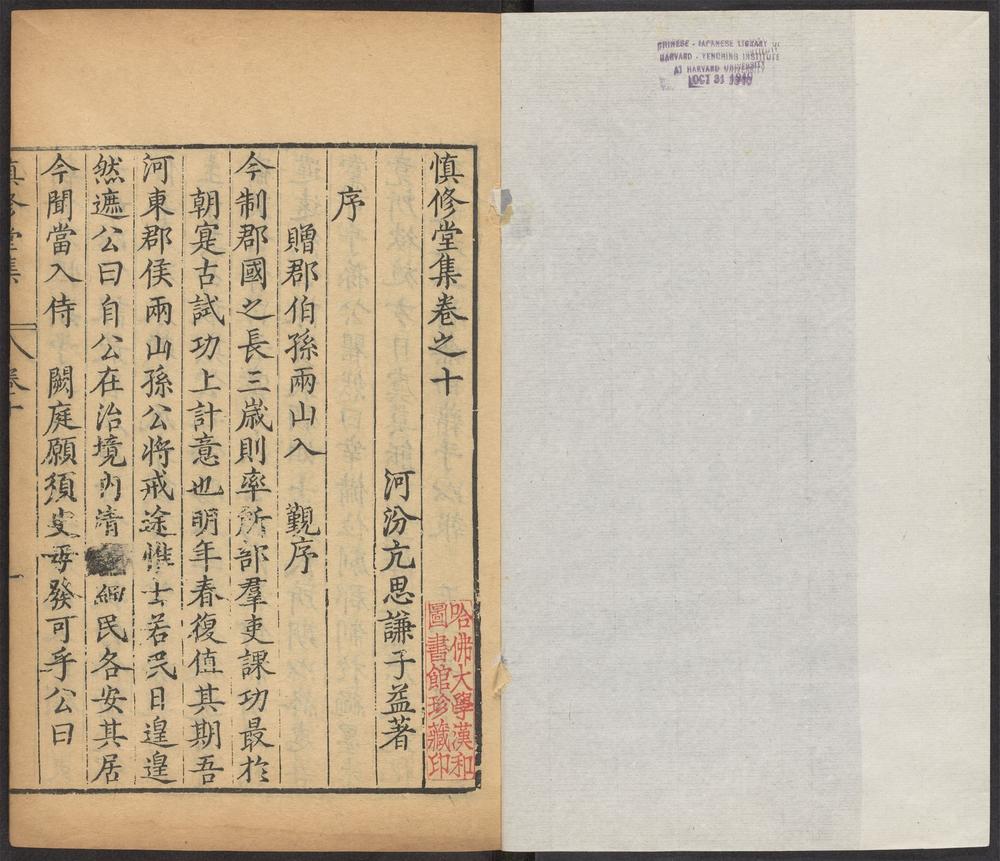 慎修堂集卷之十
河汾亢思謙子益著
序
贈郡伯孫兩山入　覲序
今制郡國之長三嵗則率所部羣吏課功最於
朝寔古試功上計意也明年春復值其期吾
河東郡侯兩山孫公將戒途惟士若民日遑遑
然遮公曰自公在治境内清綱民各安其居
今聞當入侍　闕庭願須史毋發可乎公曰
慎修堂集
卷十
一
哈佛大學漢和
圖書館珍藏印
CHINESE - JAPANESE LIBRARY OF
HARVARD - YENCHING INSTITUTE
AT HARVARD UNIVERSITY
OCT 31 1940